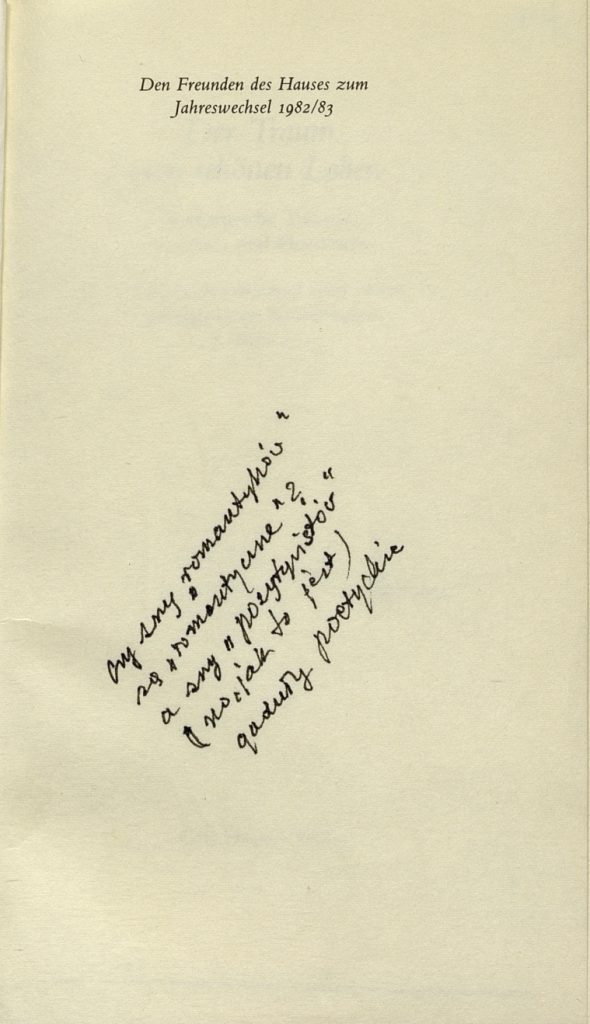 Den Freunden des Hauses zum
Jahreswechsel 1982/83
czy sny „romantyków”
są „romantyczne”?
a sny „pozytywistów”
(no, jak to jest)
gaduły poetyckie